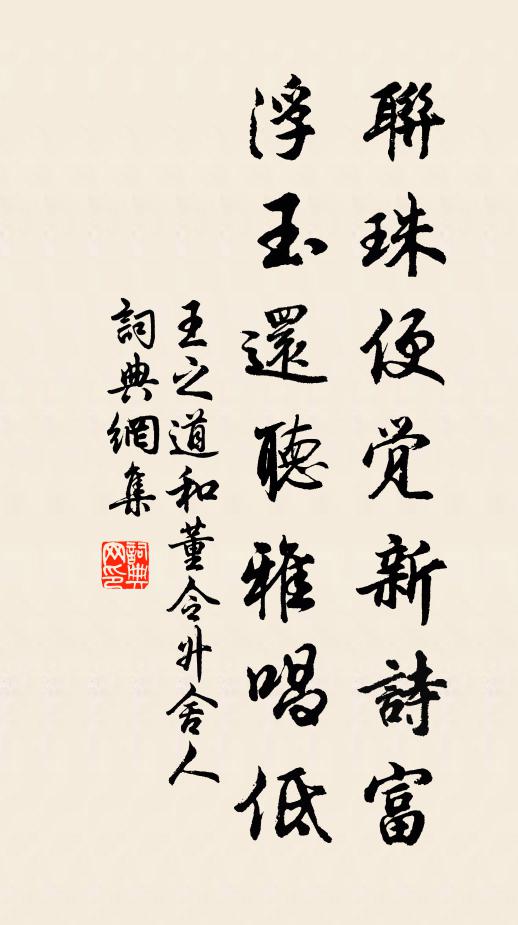 聯珠便覺新詩富
浮玉還聽雅唱低
王之道和董令升舍人
詞典網集
詞典网印